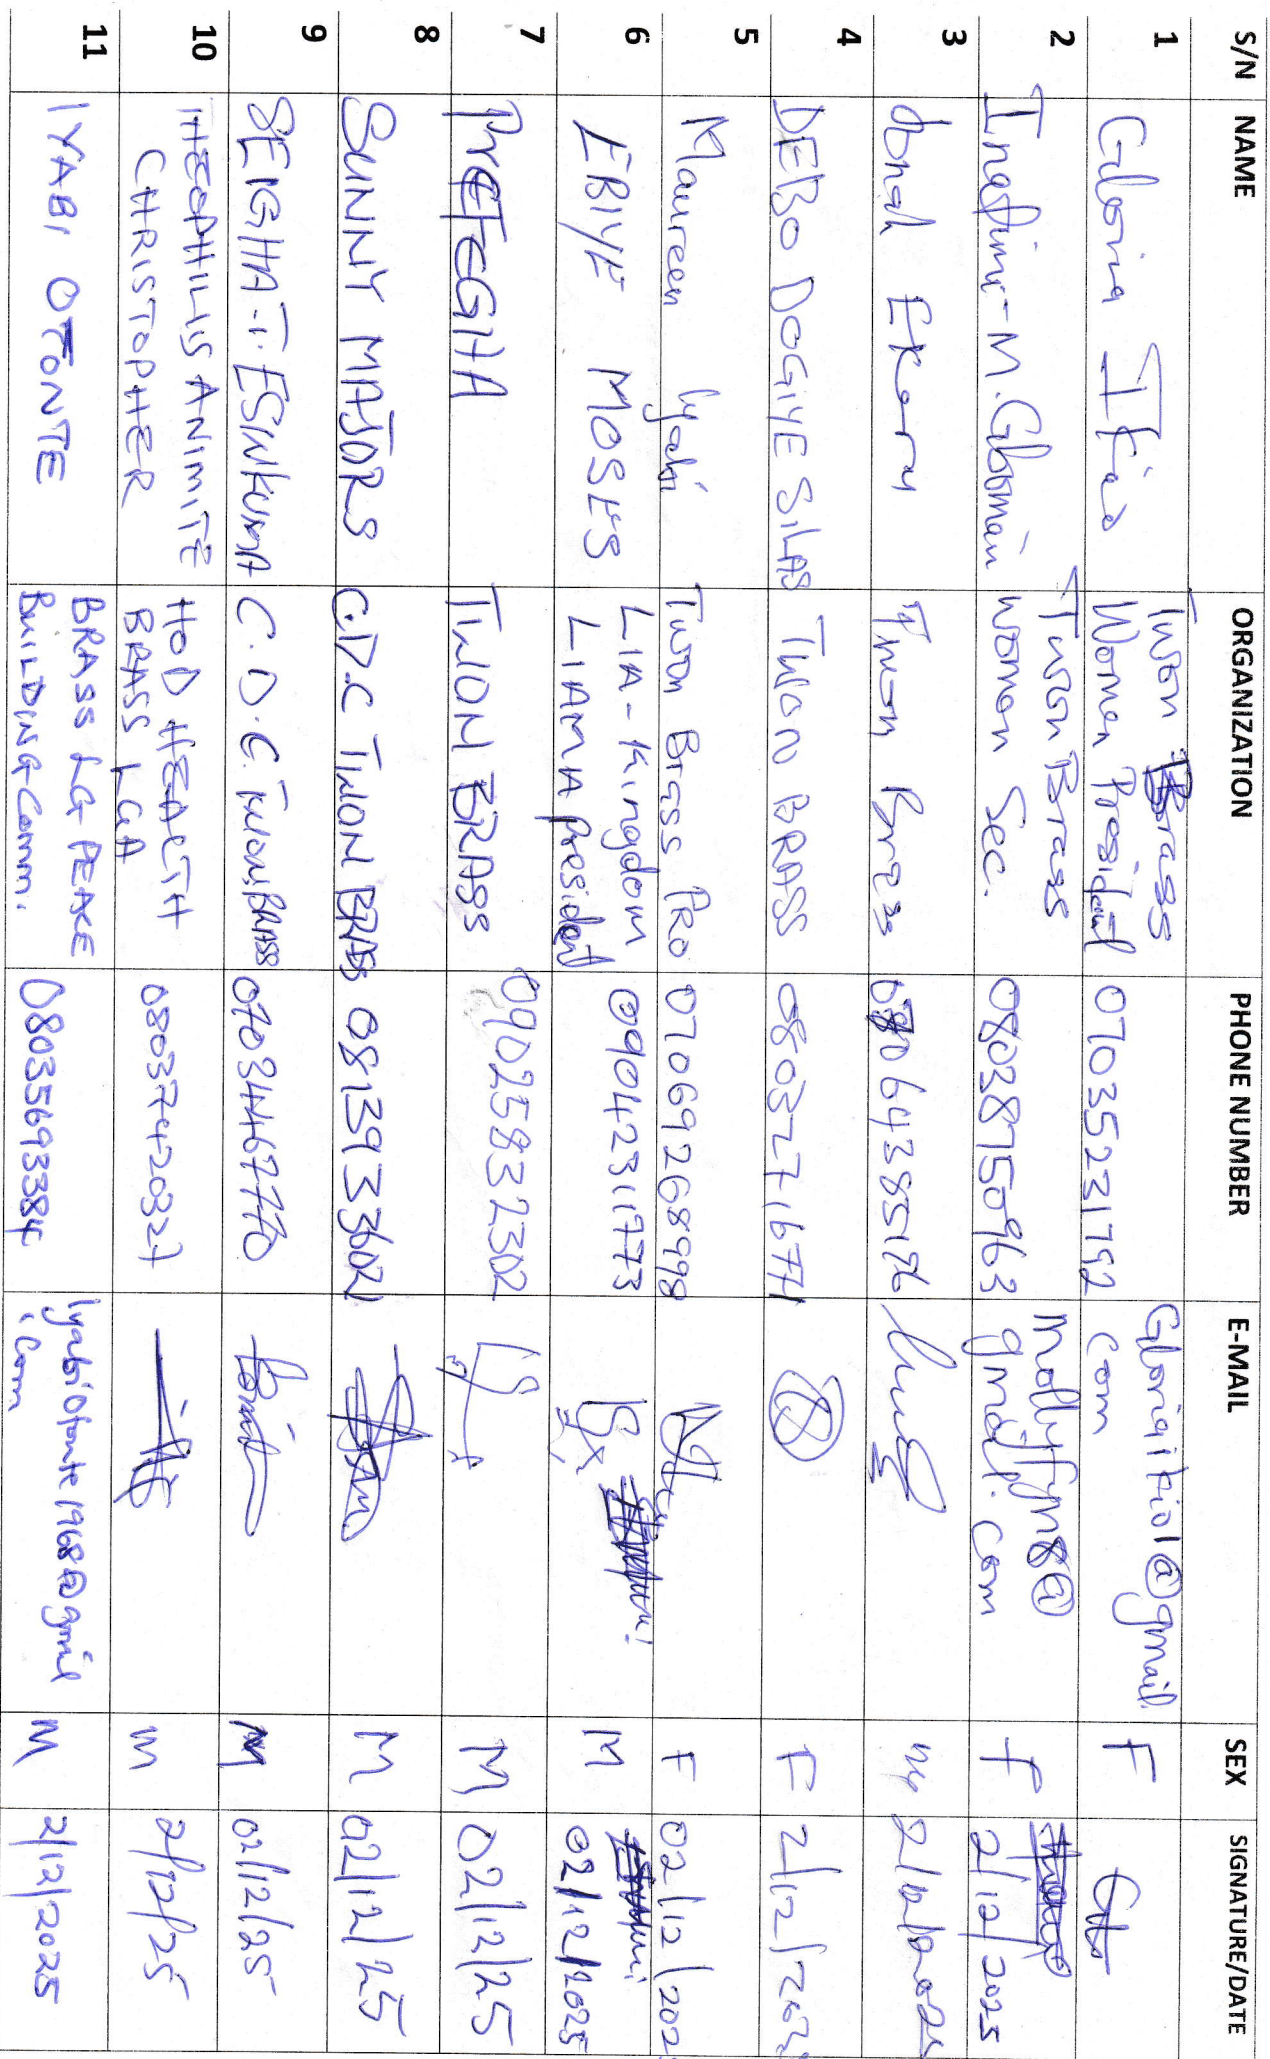 S/N NAME ORGANIZATION PHONE NUMBER E-MAIL SEX SIGNATURE/DATE
1 Gloria Ikio Twon Brass Women President 07035231792 Gloriaikio1@gmail.com F
2 Inefimi-M. Gbomain Twon Brass women Sec. 08038750963 mollyfyn8@gmail.com f 2/12/2025
3 Ekaru Twon Brass 08064385176 m 2/12/2025
4 DEBO DOGIYE SILAS TWON BRASS 08032716771 F 2/12/202
5 Maureen Iyabi Twon Brass PRO 07069268998 F 02/12/202
6 EBIYE MOSES LIA-Kingdom LIAMA President 09042311773 M 02/12/2025
7 PREFEGHA TWON BRASS 09025832302 M 02/12/25
8 SUNNY MAJORS C.D.C TWON BRASS 08139333602 M 02/12/25
9 SEIGHA .I. ESINKUMA C.D.C. TWON BRASS 07034467770 M 02/12/25
10 THEOPHILUS ANIMITE CHRISTOPHER HOD HEALTH BRASS LGA 08037420327 M 2/12/25
11 IYABI OTONTE BRASS LG PEACE BUILDING Comm. 08035693384 IyabiOtonte1968@gmil.Com M 2/12/2025